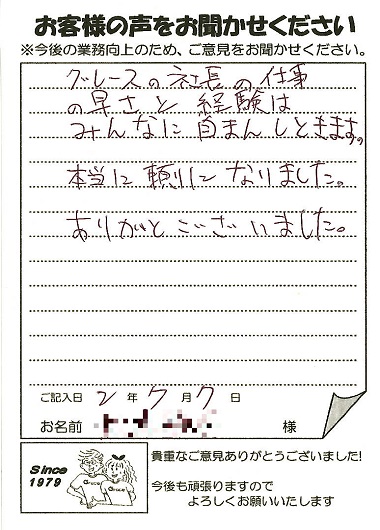 お客様の声をお聞かせください
※今後の業務向上のため、ご意見をお聞かせください。
グレースの社長の仕事
の早さと経験は
みんなに自まんしときます。
本当に頼りになりました。
ありがとうございました。
ご記入日 2年7月7日
お名前 様
Since
1979
Grace
Grace
貴重なご意見ありがとうございました!
今後も頑張りますので
よろしくお願いいたします